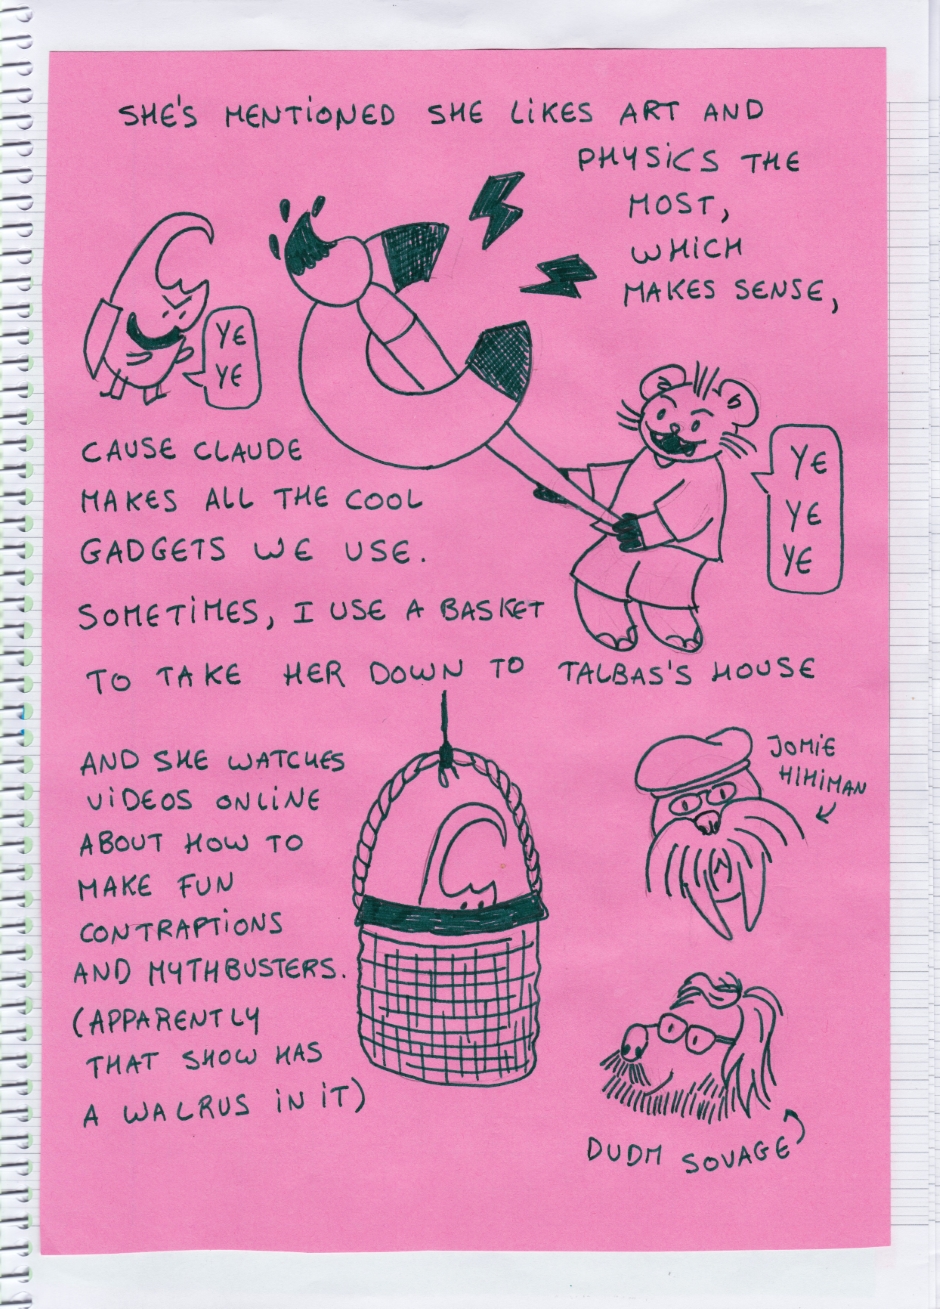 SHE'S MENTIONED SHE LIKES ART AND
PHYSICS THE
MOST,
WHICH
MAKES SENSE,
YE
YE
YE
YE
YE
CAUSE CLAUDE
MAKES ALL THE COOL
GADGETS WE USE.
SOMETIMES, I USE A BASKET
TO TAKE HER DOWN TO TALBAS'S HOUSE
AND SHE WATCHES
VIDEOS ONLINE
ABOUT HOW TO
MAKE FUN
CONTRAPTIONS
AND MYTHBUSTERS.
(APPARENTLY
THAT SHOW HAS
A WALRUS IN IT)
JOMIE
HIHIMAN
DUDM SOVAGE